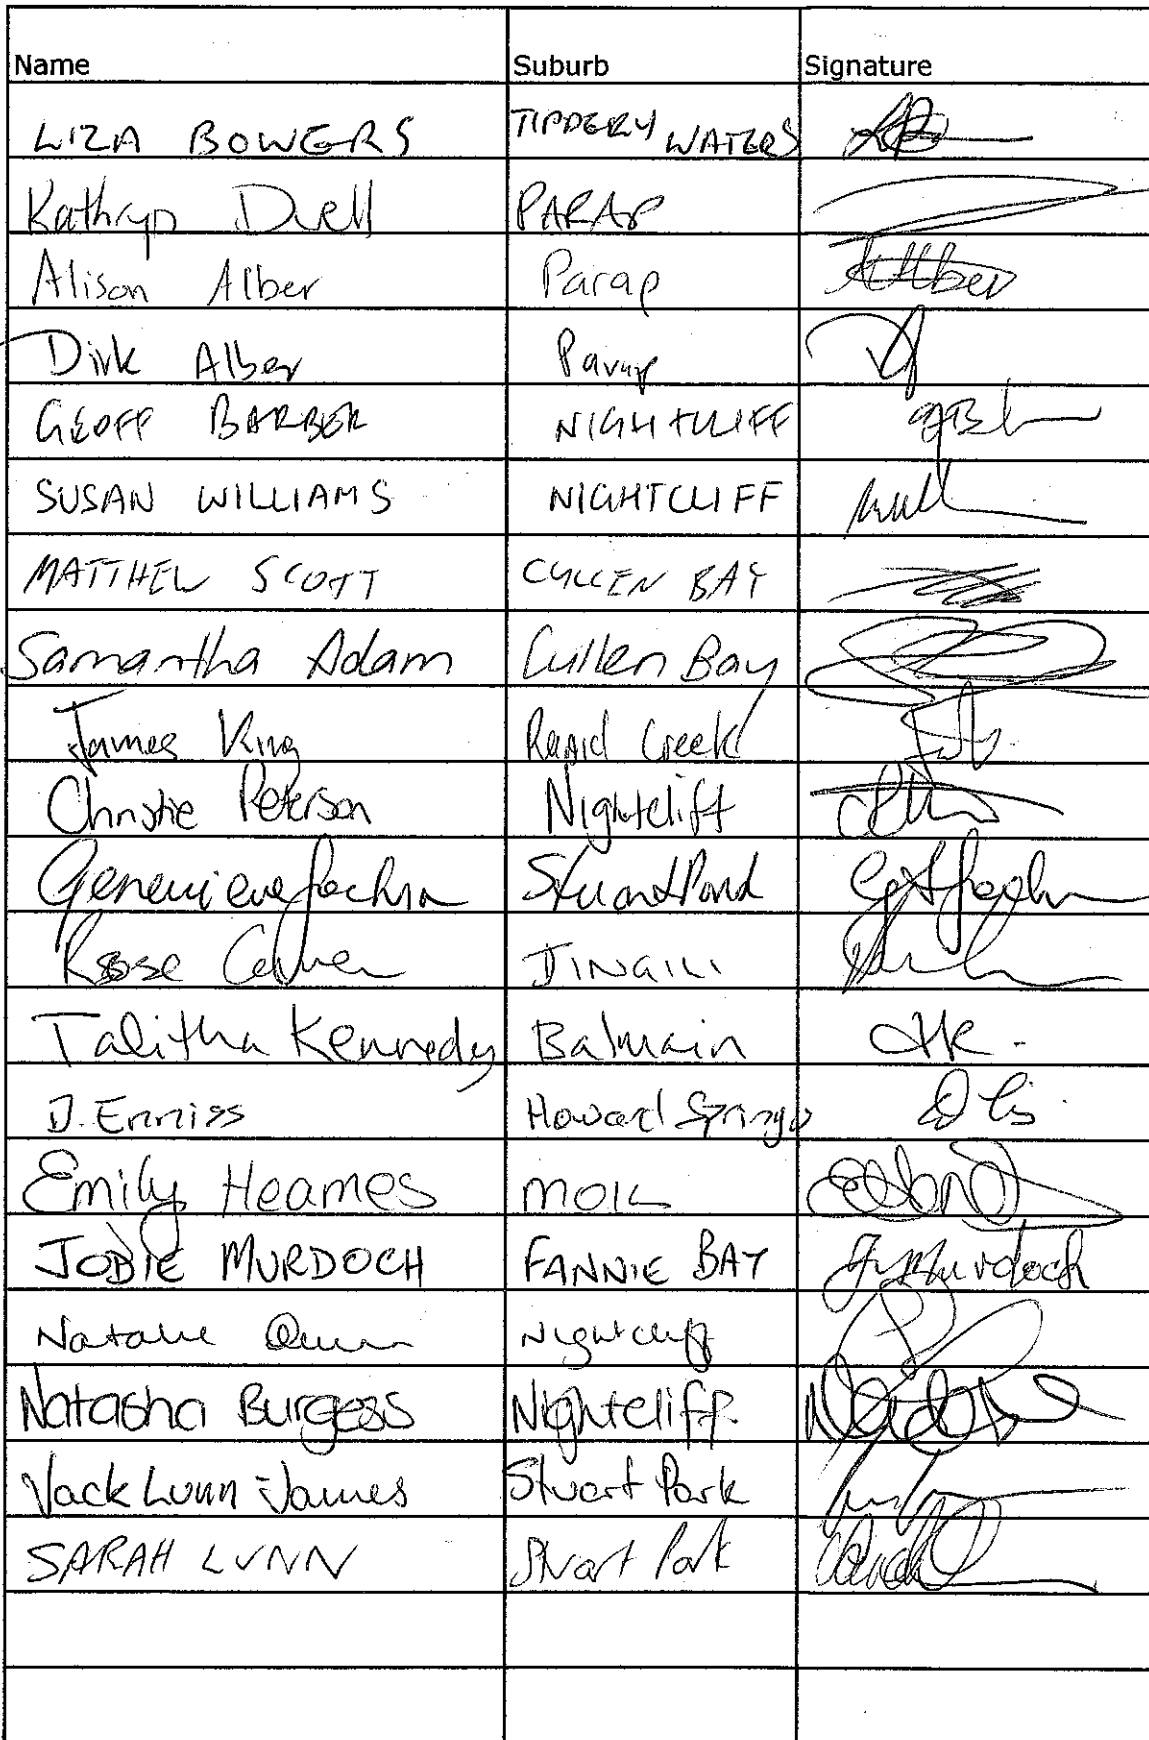 Name Suburb Signature
LIZA BOWERS TIPPERY WATERS
Kathryn Duell PARAP
Alison Alber Parap AAlber
Dirk Alber Parap
GEOFF BARBER NIGHTCLIFF
SUSAN WILLIAMS NIGHTCLIFF
MATTHEW SCOTT CULLEN BAY
Samantha Adam Cullen Bay
James King Rapid Creek
Christie Peterson Nightcliff
Genevieve Stuart Park
Rose JINGILI
Talitha Kennedy Balmain
J. Enniss Howard Springs
Emily Heames MOIL
JODIE MURDOCH FANNIE BAY Murdoch
Natalie Quinn Nightcliff
Natasha Burgess Nightcliff
Jack Lunn-James Stuart Park
SARAH LUNN Stuart Park